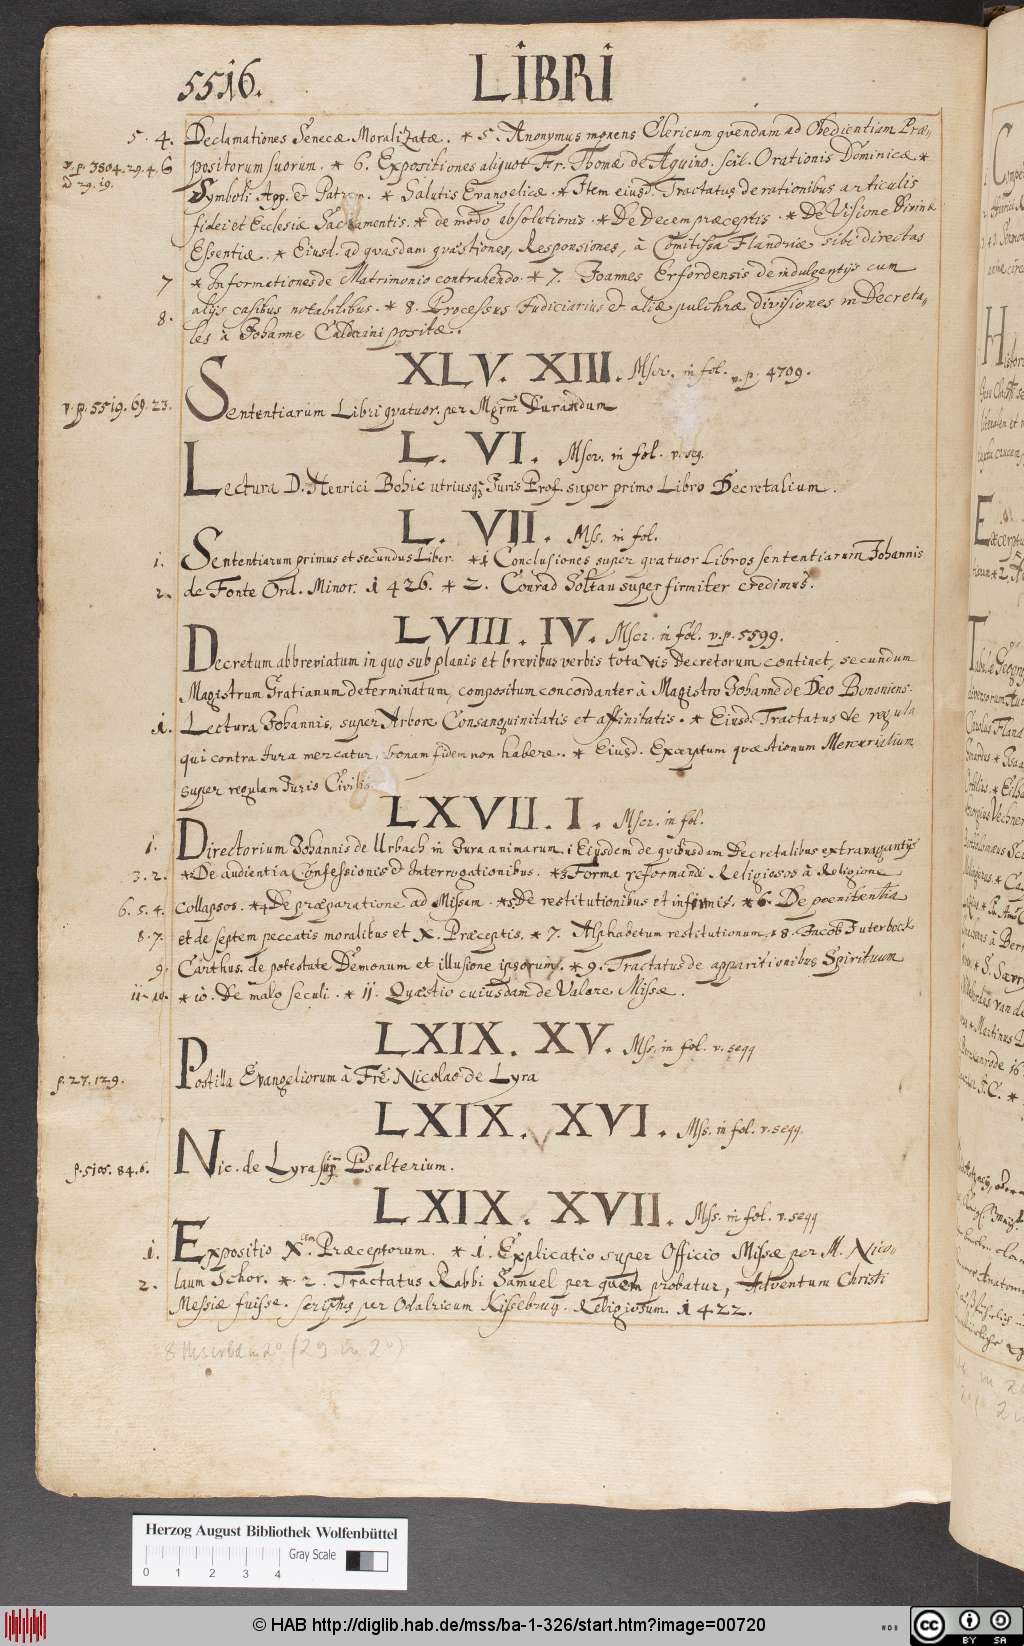 5516.
LIBRI
5. 4. Declamationes Senecæ Moralizatæ. * 5. Anonymus monens Clericum quendam ad Obedientiam Præ-
v. p. 3804. 29. 4. 6 positorum suorum. * 6. Expositiones aliquot Fr. Thomæ de Aquino. scil. Orationis Dominicæ *
29. 19. Symboli App. & Patrem. * Salutis Evangelicæ * Item eiusd. Tractatus de rationibus articulis
fidei et Ecclesiæ Sacramentis. * de modo absolutionis * De Decem præceptis. * De Visione Divinæ
Essentiæ. * Eiusd. ad quasdam quæstiones, Responsiones, à Comitissa Flandriæ sibi directas
7 * Informationes de Matrimonio contrahendo. * 7. Joannes Erfordensis de indulgentijs cum
8. alijs casibus notabilibus. * 8. Processus Judiciarius et aliæ pulchræ divisiones in Decreta-
les à Johanne Calderini positæ.
XLV. XIII. Mscr. in fol. v. p. 4709.
v. p. 5519. 69. 23. Sententiarum Libri quatuor. per Mgrm Durandum
L. VI. Mscr. in fol. v. seq.
Lectura D. Henrici Bohic utriusq; Juris Prof. super primo Libro Decretalium.
L. VII. Mss. in fol.
1. Sententiarum primus et secundus Liber. * 1 Conclusiones super quatuor Libros sententiarum Johannis
2. de Fonte Ord. Minor. 1426. * 2. Conrad Soltau super firmiter credimus.
LVIII. IV. Mscr. in fol. v. p. 5599.
Decretum abbreviatum in quo sub planis et brevibus verbis tota vis Decretorum continet, secundum
Magistrum Gratianum determinatum, compositum concordanter à Magistro Johanne de Deo Bononiens.
1. Lectura Johannis, super Arbore Consanguinitatis et affinitatis. * Eiusd. Tractatus de regula
qui contra Jura mercatur, bonam fidem non habere. * Eiusd. Excerptum quæstionum Mercurialium
super regulam Juris Civilis.
LXVII. I. Mscr. in fol.
1. Directorium Johannis de Urbach in Jura animarum. 1 Eiusdem de quibusdam Decretalibus extravagantijs
3. 2. * 2 De audientia Confessionis & Interrogationibus. * 3 Forma reformandi Religiosos à Religione
6. 5. 4. collapsos. * 4 De præparatione ad Missam. * 5 De restitutionibus et infirmis. * 6. De poenitentia
8. 7. et de septem peccatis moralibus et X. Præceptis. * 7. Alphabetum restitutionum. * 8. Jacob Juterbock
9. Carthus. de potestate Dæmonum et illusione ipsorum. * 9. Tractatus de apparitionibus Spirituum
11. 10. * 10. De malo seculi. * 11. Quæstio cuiusdam de Valore Missæ.
LXIX. XV. Mss. in fol. v. seqq
p. 27. 129. Postilla Evangeliorum à Fre. Nicolao de Lyra
LXIX. XVI. Mss. in fol. v. seqq.
p. 5105. 84. 6. Nic. de Lyra sup. Psalterium.
LXIX. XVII. Mss. in fol. v. seqq
1. Expositio X. Præceptorum. * 1. Explicatio super Officio Missæ per M. Nico-
2. laum Schor. * 2. Tractatus Rabbi Samuel per quem probatur, Adventum Christi
Messiæ fuisse. scriptus per Odalricum Kissebruij. Religiosum. 1422.
Herzog August Bibliothek Wolfenbüttel
Gray Scale
0 1 2 3 4
© HAB http://diglib.hab.de/mss/ba-1-326/start.htm?image=00720
WDB
cc BY SA